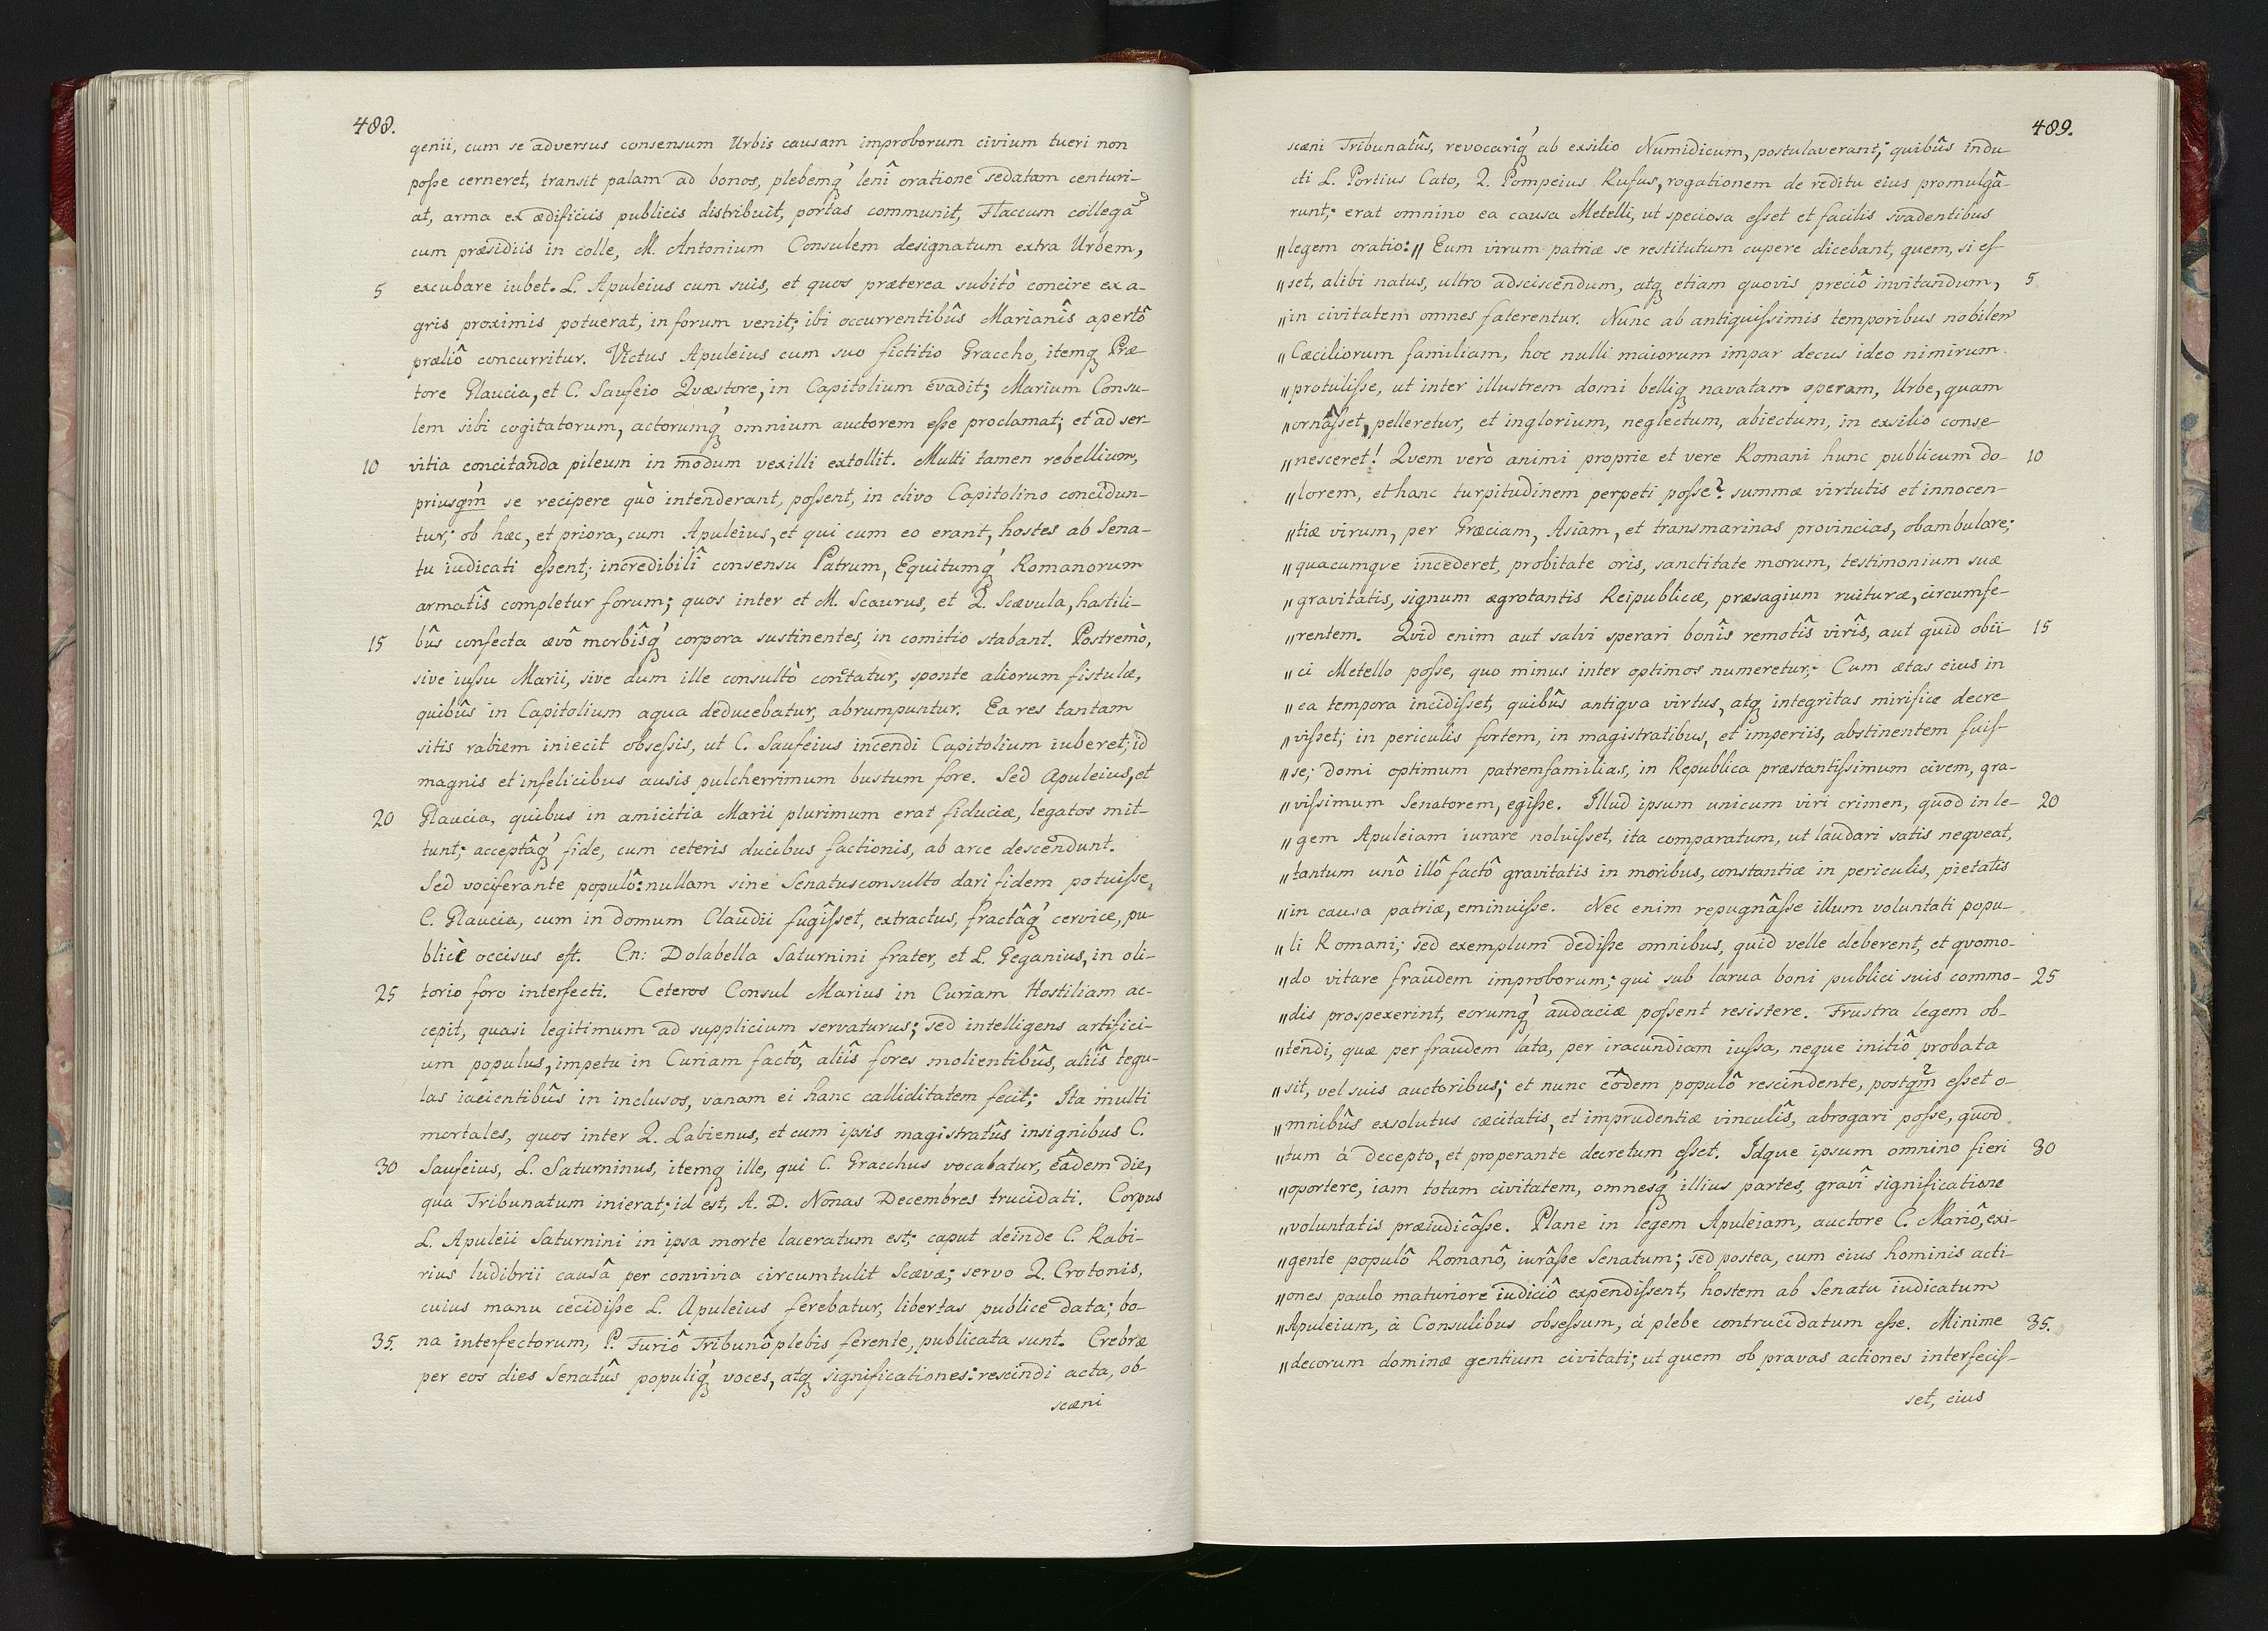 488.
genii, cum se adversus consensum Urbis causam improborum civium tueri non
poſse cerneret, transit palam ad bonos, plebemq́ lenî oratione sedatam centuri-
at, arma ex ædificiis publicis distribuit, portas communit, Flaccum collegã
cum præsidiis in colle, M. Antonium Consulem designatum extra Urbem,
5 excubare iubet. L. Apuleius cum suis, et quos præterea subitò concire ex a-
gris proximis potuerat, in forum venit; ibi occurrentibûs Marianîs apertô
præliô concurritur. Victus Apuleius cum suo fictitio Graccho, itemq Præ-
tore Glaucia, et C. Saufeio Quæstore, in Capitolium evadit; Marium Consu-
lem sibi cogitatorum, actorumq́ omnium auctorem eſse proclamat; et ad ser-
10 vitia concitanda pileum in modum vexilli extollit. Multi tamen rebellium,
priusqm̃ se recipere quò intenderant, poſsent, in clivo Capitolino concidun-
tur; ob hæc, et priora, cum Apuleius, et qui cum eo erant, hostes ab Sena-
tu iudicati eſsent; incredibilî consensu Patrum, Equitumq́ Romanorum
armatîs completur forum; quos inter et M. Scaurus, et Q. Scævula, hastili-
15 bûs confecta ævô morbîsq́ corpora sustinentes, in comitio stabant. Postremò,
sive iuſsu Marii, sive dum ille consultò contatur, sponte aliorum fistulæ,
quibûs in Capitolium aqua deducebatur, abrumpuntur. Ea res tantam
sitis rabiem iniecit obseſsis, ut C. Saufeius incendi Capitolium iuberet; id
magnis et infelicibus ausis pulcherrimum bustum fore. Sed Apuleius, et
20 Glaucia, quibus in amicitia Marii plurimum erat fiduciæ, legatos mit-
tunt; acceptâq́ fide, cum ceteris ducibus factionis, ab arce descendunt.
Sed vociferante populô: nullam sine Senatusconsulto dari fidem potuiſse,
C. Glaucia, cum in domum Claudii fugîſset, extractus, fractâq́ cervice, pu-
blicè occisus eſt. Cn: Dolabella Saturnini frater, et L. Geganius, in oli-
25 torio foro interfecti. Ceteros Consul Marius in Curiam Hostiliam ac-
cepit, quasi legitimum ad supplicium servaturus; sed intelligens artifici-
um populus, impetu in Curiam factô, aliîs fores molientibûs, aliîs tegu-
las iacientibûs in inclusos, vanam ei hanc calliditatem fecit; Ita multi
mortales, quos inter Q. Labienus, et cum ipsis magistratûs insignibus C.
30 Saufeius, L. Saturninus, itemq ille, qui C. Gracchus vocabatur, eâdem die,
qua Tribunatum inierat; id est, A. D. Nonas Decembres trucidati. Corpus
L. Apuleii Saturnini in ipsa morte laceratum est; caput deinde C. Rabi-
rius ludibrii causâ per convivia circumtulit Scævæ; servo Q. Crotonis,
cuius manu cecidiſse L. Apuleius ferebatur, libertas publice data; bo-
35. na interfectorum, P. Furiô Tribunô plebis ferente, publicata sunt. Crebræ
per eos dies Senatûs populiq́ voces, atq significationes: rescindi acta, ob-
scæni
489.
scæni Tribunatûs, revocariq́ ab exsilio Numidicum, postulaverant; quibûs indu-
cti L. Portius Cato, Q. Pompeius Rufus, rogationem de reditu eius promulgâ-
runt; erat omnino ea causa Metelli, ut speciosa eſset et facilis svadentibus
„legem oratio: „ Eum virum patriæ se restitutum cupere dicebant, quem, si eſ-
„set, alibi natus, ultro adsciscendum, atq etiam quovis preciô invitandum, 5
„in civitatem omnes faterentur. Nunc ab antiquiſsimis temporibus nobilem
„Cæciliorum familiam, hoc nulli maiorum impar decus ideo nimirum
„protuliſse, ut inter illustrem domi belliq navatam operam, Urbe, quam
„ornâſset, pelleretur, et inglorium, neglectum, abiectum, in exsilio conse-
„nesceret! Qvem verò animi proprie et vere Romani hunc publicum do- 10
„lorem, et hanc turpitudinem perpeti poſse? summæ virtutis et innocen-
„tiæ virum, per Græciam, Asiam, et transmarinas provincias, obambulare;
„quacumqve incederet, probitate oris, sanctitate morum, testimonium suæ
„gravitatis, signum ægrotantis Reipublicæ, præsagium ruituræ, circumfe-
„rentem. Qvid enim aut salvi sperari bonîs remotîs virîs, aut quid obii- 15
„ci Metello poſse, quo minus inter optimos numeretur; Cum ætas eius in
„ea tempora incidiſset, quibûs antiqva virtus, atq integritas mirifice decre-
„viſset; in periculis fortem, in magistratibus, et imperiis, abstinentem fuiſ-
„se; domi optimum patremfamilias, in Republica præstantiſsimum civem, gra-
„viſsimum Senatorem, egiſse. Illud ipsum unicum viri crimen, quod in le- 20
„gem Apuleiam iurare noluiſset, ita comparatum, ut laudari satis neqveat,
„tantum unô illô factô gravitatis in moribus, constantiæ in periculis, pietatis
„in causa patriæ, eminuiſse. Nec enim repugnâſse illum voluntati popu-
„li Romani; sed exemplum dediſse omnibus, quid velle deberent, et qvomo-
„do vitare fraudem improborum; qui sub larua boni publici suis commo- 25
„dis prospexerint, eorumq́ audaciæ poſsent resistere. Frustra legem ob-
„tendi, quæ per fraudem lata, per iracundiam iuſsa, neque initiô probata
„sit, vel suis auctoribus; et nunc eôdem populô rescindente, postqm̃ eſset o-
„mnibûs exsolutus cæcitatis, et imprudentiæ vinculîs, abrogari poſse, quod
„tum à decepto, et properante decretum eſset. Idque ipsum omnino fieri 30
„oportere, iam totam civitatem, omnesq́ illius partes, gravî significatione
„voluntatis præiudicâſse. Plane in legem Apuleiam, auctore C. Mariô, exi-
„gente populô Romanô, iurâſse Senatum; sed postea, cum eius hominis acti-
„ones paulo maturiore iudiciô expendiſsent, hostem ab Senatu iudicatum
„Apuleium, à Consulibus obseſsum, á plebe contrucidatum eſse. Minime 35.
„decorum dominæ gentium civitati; ut quem ob pravas actiones interfeciſ-
set, eius